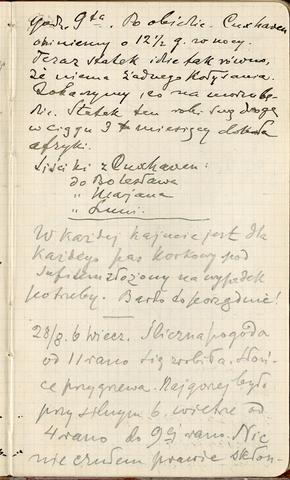 godz. 9ta. Po obiedzie. Cuxhaven
ominiemy o 12½ g. w nocy.
Teraz statek idzie tak równo,
że niema żadnego kołysania.
Zobaczymy, co na morzu bę-
dzie. Statek ten robi swą drogę
w ciągu 3 miesięcy dokoła
afryki.
Liściki z Cuxhaven:
do Bolesława
" Marjana
" Luni.
W każdej kajucie jest dla
każdego pas korkowy pod
sufitem złożony na wypadek
potrzeby. Bardzo porządnie!
28/8. 6 wiecz. Śliczna pogoda
od 11 rano się zrobiła. Słoń-
ce przygrzewa. Najgorzej było
przy silnym b. wietrze od
4 rano do 9ej rano. Nic
nie czułem prawie skłon-